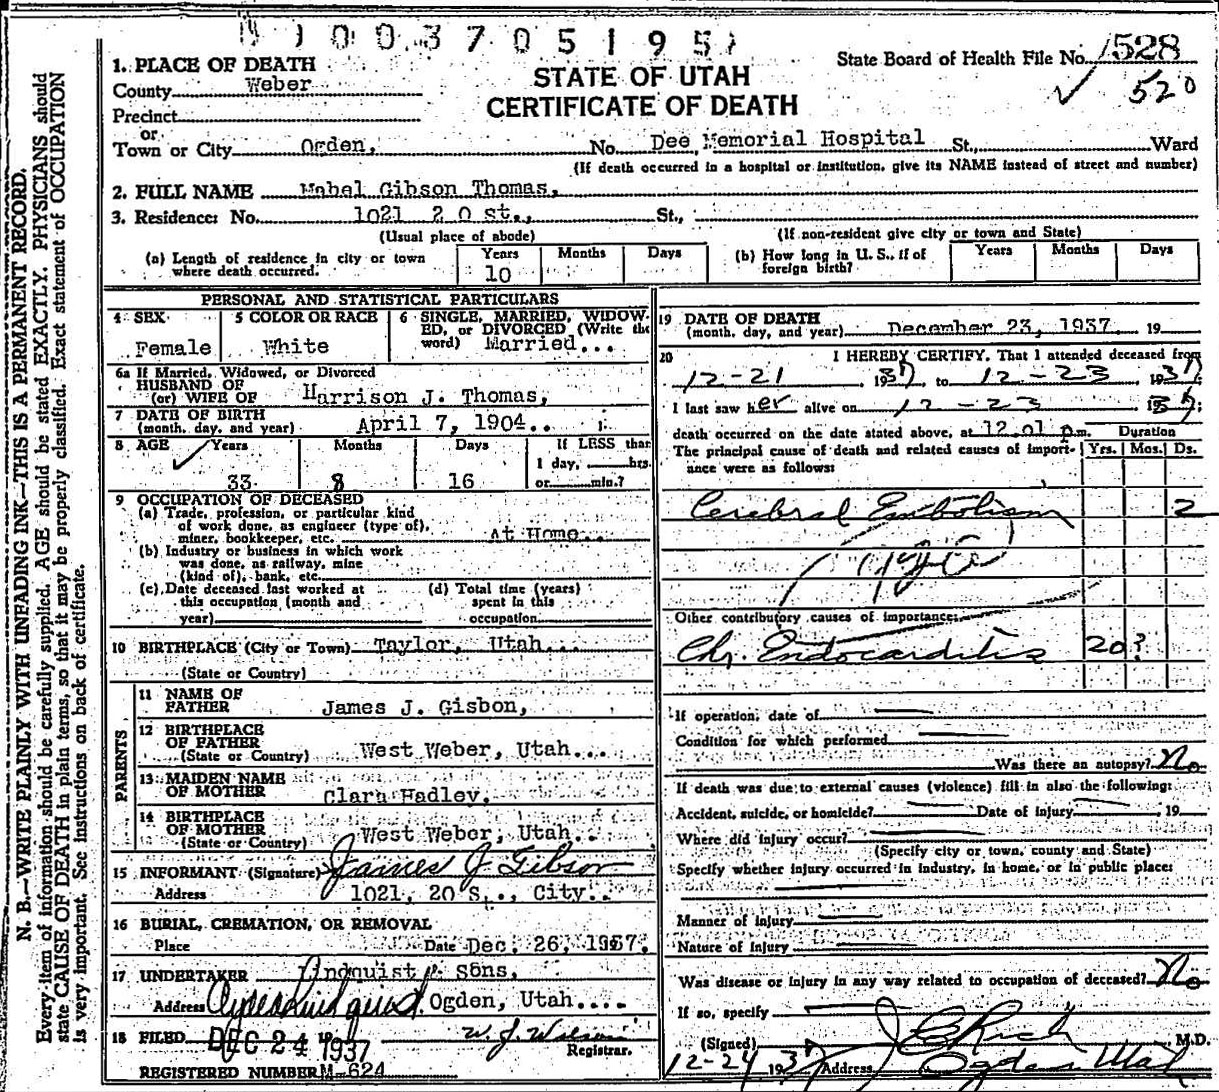 1003705195
State Board of Health File No. 1528
520
STATE OF UTAH
CERTIFICATE OF DEATH
1. PLACE OF DEATH
County Weber
Precinct
or
Town or City Ogden, No. Dee Memorial Hospital St., Ward
(If death occurred in a hospital or institution, give its NAME instead of street and number)
2. FULL NAME Mabel Gibson Thomas,
3. Residence: No. 1021 2 0 st., St.,
(Usual place of abode) (If non-resident give city or town and State)
(a) Length of residence in city or town where death occurred. Years 10 Months Days
(b) How long in U. S., if of foreign birth? Years Months Days
PERSONAL AND STATISTICAL PARTICULARS
4 SEX Female
5 COLOR OR RACE White
6 SINGLE, MARRIED, WIDOWED, or DIVORCED (Write the word) Married...
6a If Married, Widowed, or Divorced
HUSBAND OF
(or) WIFE OF Harrison J. Thomas,
7 DATE OF BIRTH
(month, day, and year) April 7, 1904..
8 AGE Years 33 Months 8 Days 16
If LESS than
1 day, hrs.
or min.?
9 OCCUPATION OF DECEASED
(a) Trade, profession, or particular kind
of work done, as engineer (type of),
miner, bookkeeper, etc. At Home..
(b) Industry or business in which work
was done, as railway, mine
(kind of), bank, etc.
(c) Date deceased last worked at
this occupation (month and
year)
(d) Total time (years)
spent in this
occupation
10 BIRTHPLACE (City or Town) Taylor, Utah...
(State or Country)
PARENTS
11 NAME OF
FATHER James J. Gisbon,
12 BIRTHPLACE
OF FATHER
(State or Country) West Weber, Utah...
13 MAIDEN NAME
OF MOTHER Clara Hadley.
14 BIRTHPLACE
OF MOTHER
(State or Country) West Weber, Utah..
15 INFORMANT (Signature) James J Gibson
Address 1021, 20 S,., City..
16 BURIAL, CREMATION, OR REMOVAL
Place Date Dec. 26, 1937.
17 UNDERTAKER Lindquist & Sons,
Address Ogden, Utah....
18 FILED DEC 24 1937 W. J. Wilson
Registrar.
REGISTERED NUMBER M-624
19 DATE OF DEATH
(month, day, and year) December 23, 1937. 19
20 I HEREBY CERTIFY, That I attended deceased from
12-21, 1937, to 12-23, 1937
I last saw her alive on 12-23 1937;
death occurred on the date stated above, at 12.01 p.m. Duration
The principal cause of death and related causes of importance were as follows: Yrs. Mos. Ds.
Cerebral Embolism 2
Other contributory causes of importance:
Chr. Endocarditis 20?
If operation, date of
Condition for which performed
Was there an autopsy? No
If death was due to external causes (violence) fill in also the following:
Accident, suicide, or homicide? Date of Injury , 19
Where did injury occur?
(Specify city or town, county and State)
Specify whether injury occurred in industry, in home, or in public place:
Manner of Injury
Nature of Injury
Was disease or injury in any way related to occupation of deceased? No
If so, specify
(Signed) J C Rich M.D.
12-24 1937 Address Ogden Utah
N. B.—WRITE PLAINLY WITH UNFADING INK—THIS IS A PERMANENT RECORD.
Every item of information should be carefully supplied. AGE should be stated EXACTLY. PHYSICIANS should
state CAUSE OF DEATH in plain terms, so that it may be properly classified. Exact statement of OCCUPATION
is very important. See instructions on back of certificate.